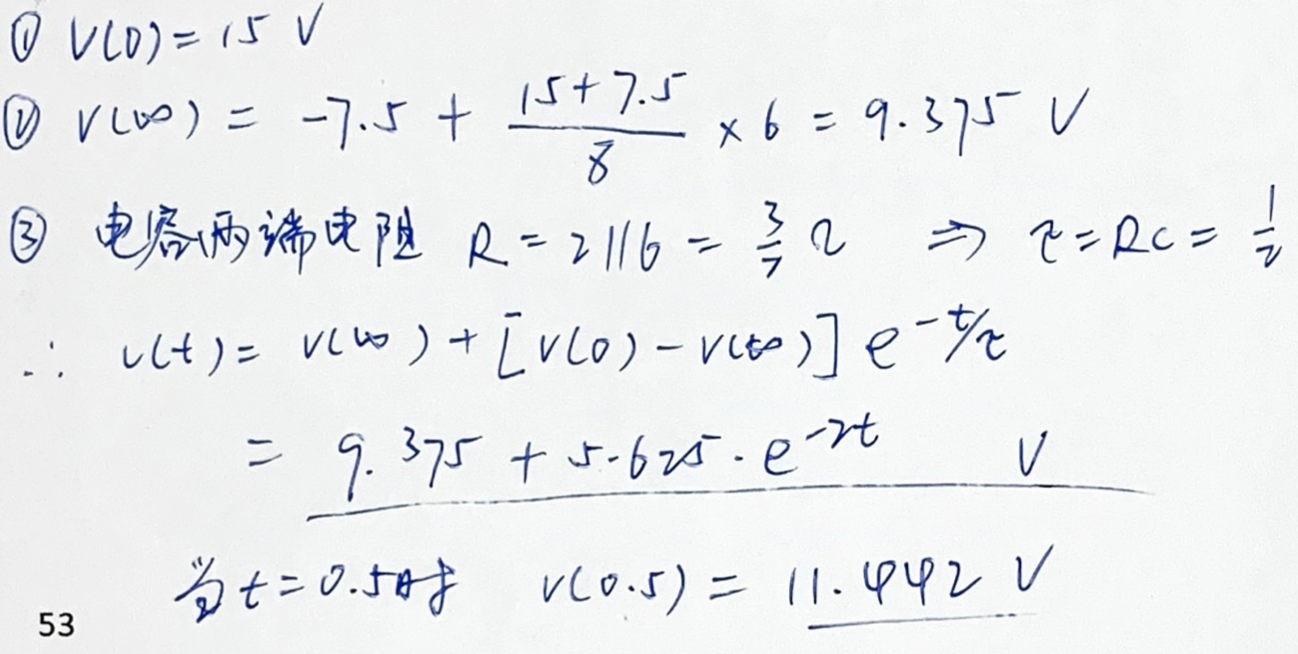 ① V(0) = 15 V
② V(∞) = -7.5 + \frac{15+7.5}{8} × 6 = 9.375 V
③ 电容两端电阻 R = 2||6 = \frac{3}{2} Ω ⇒ τ = RC = \frac{1}{2}
∴ v(t) = v(∞) + [v(0) - v(∞)] e^{-t/τ}
= 9.375 + 5.625 · e^{-2t} V
当 t = 0.5时 v(0.5) = 11.442 V
53